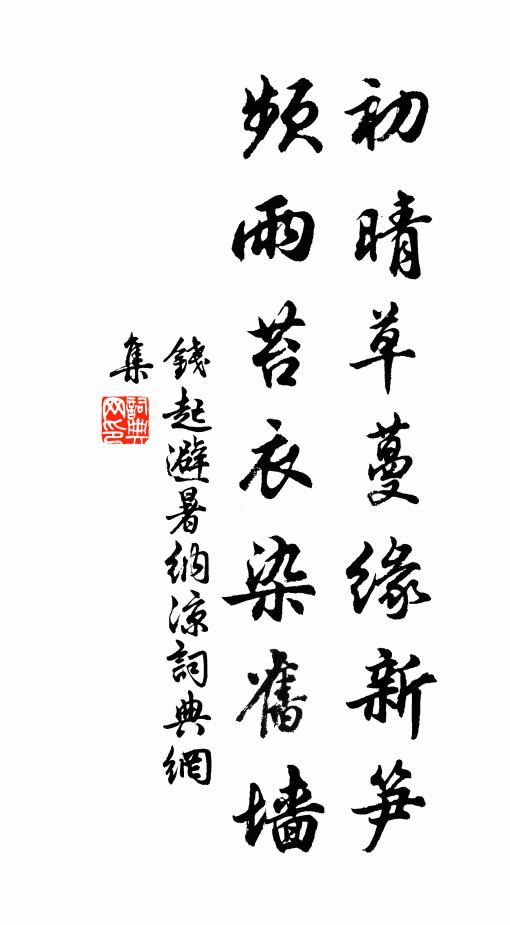 初晴草蔓缘新笋
频雨苔衣染舊墙
錢起避暑纳凉詞典網
集
詞典
网印